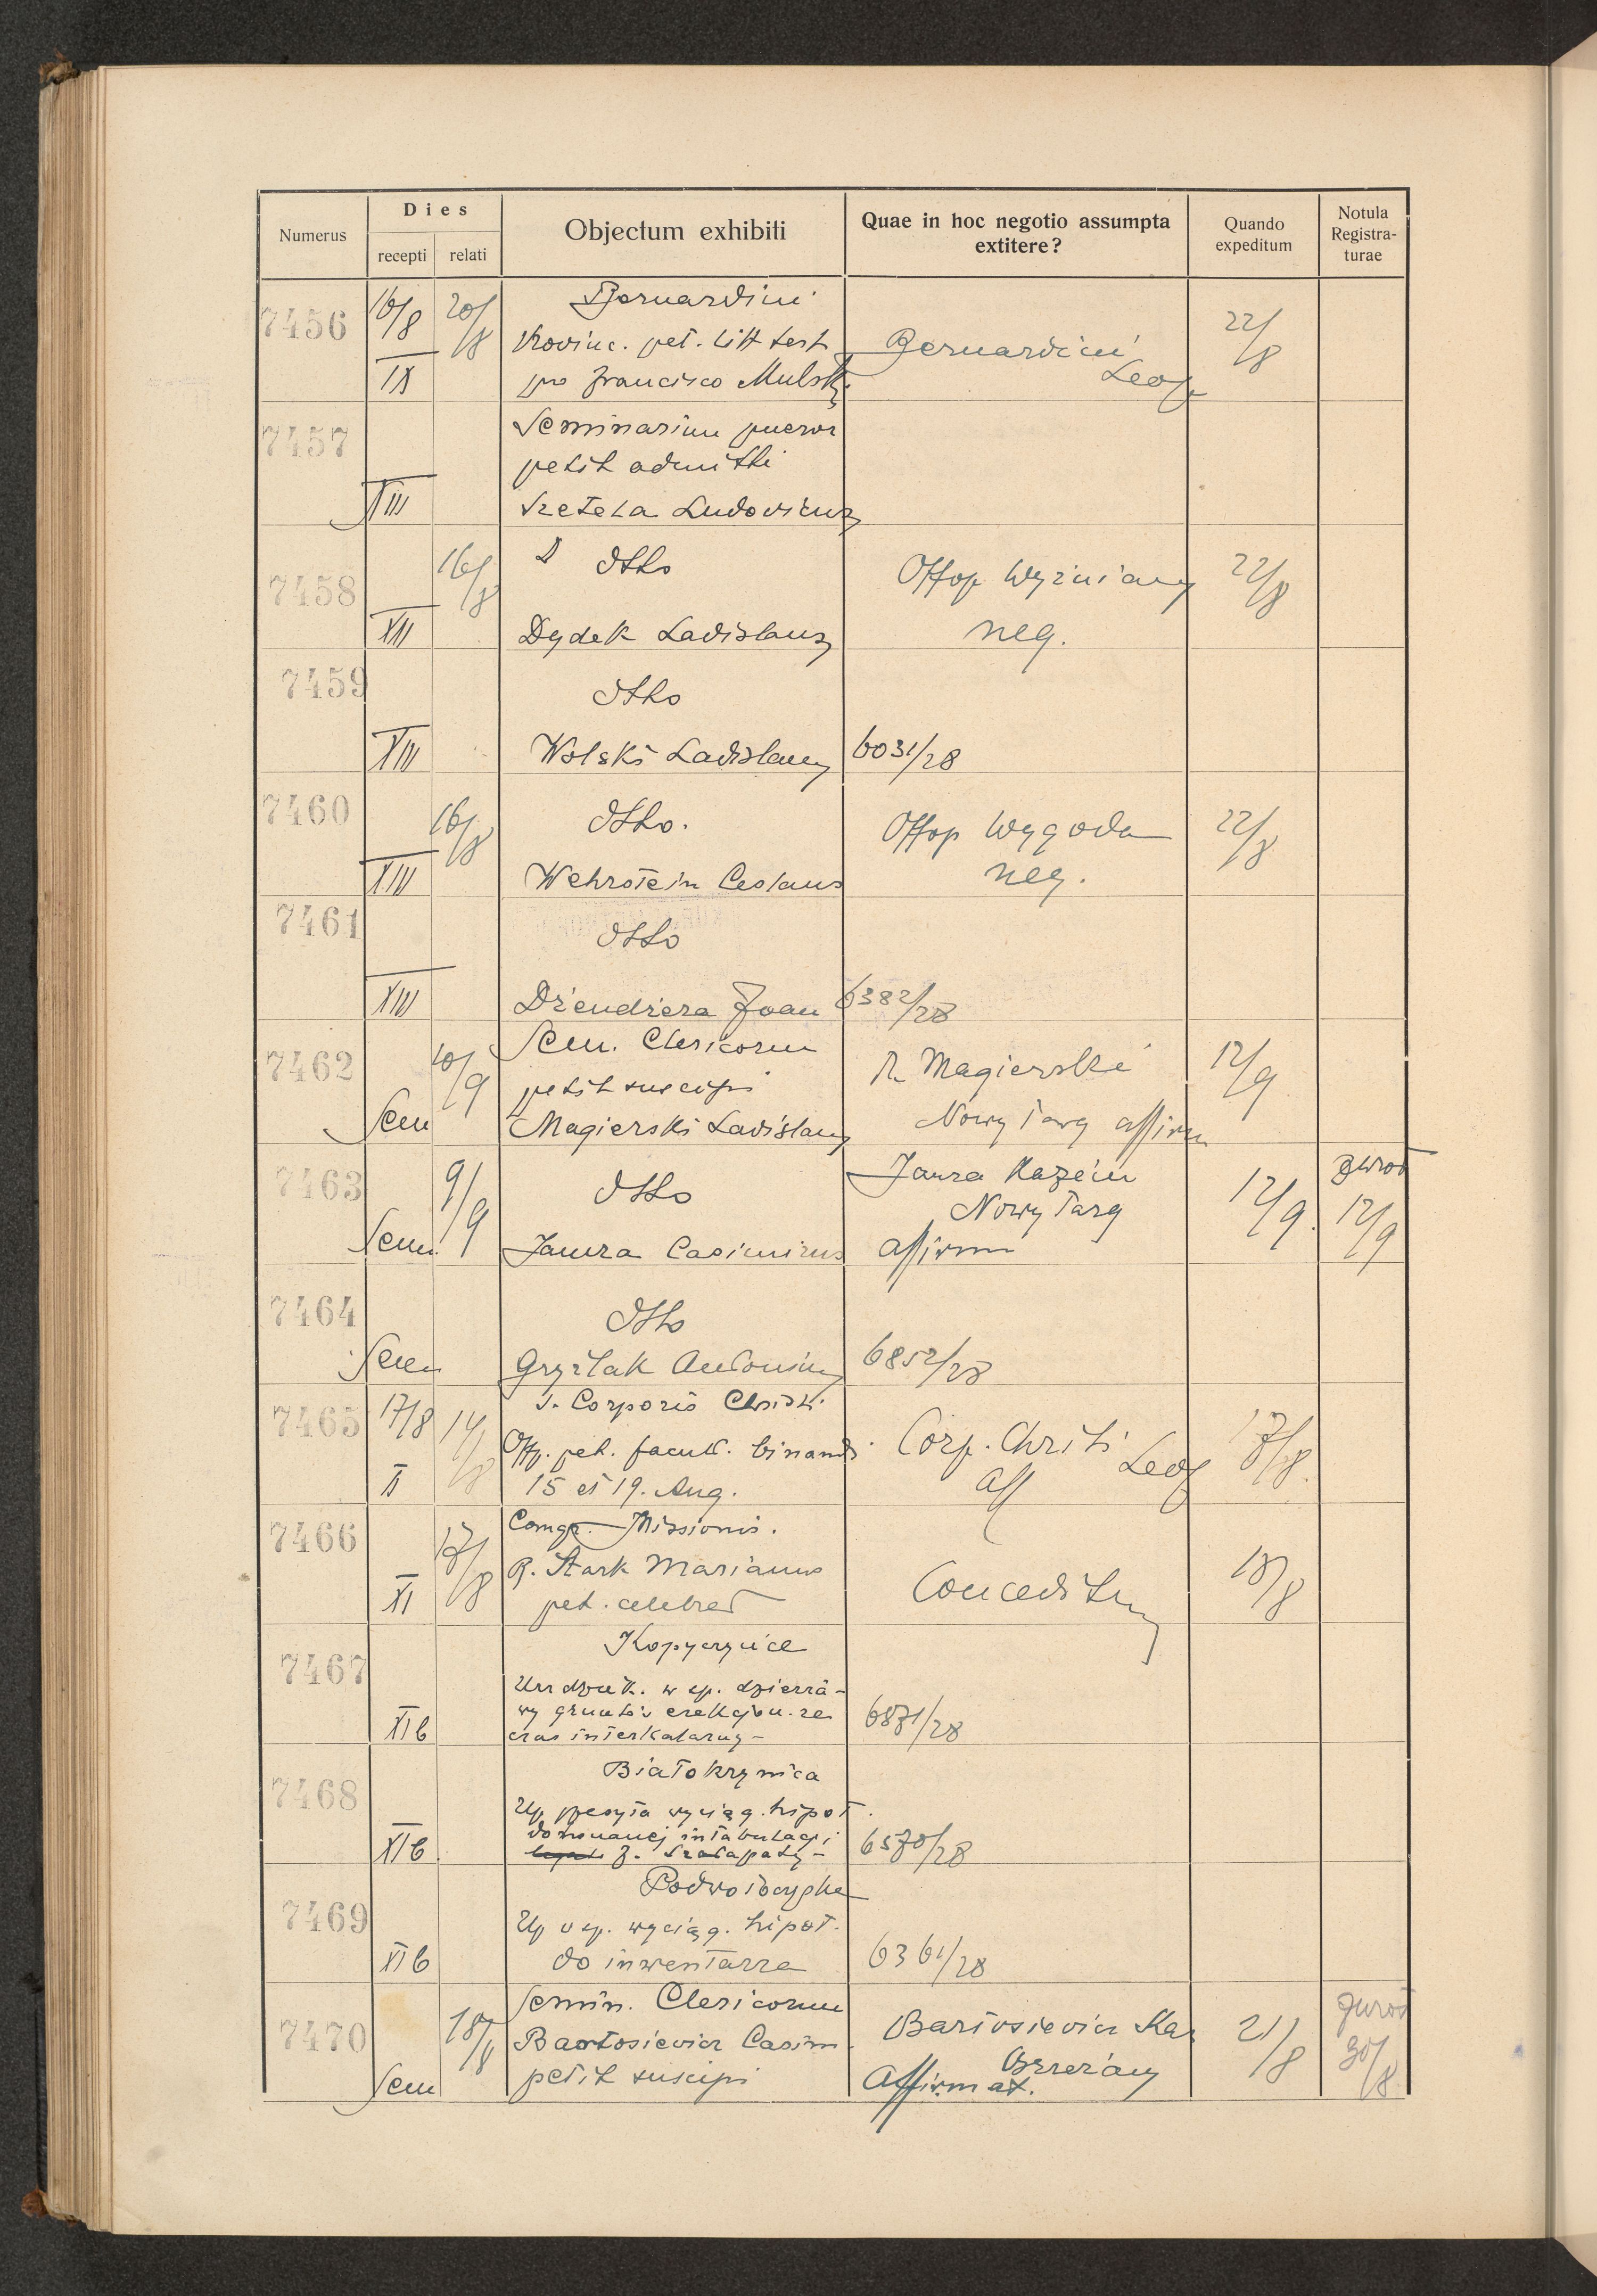 Numerus
Dies
recepti
relati
Objectum exhibiti
Quae in hoc negotio assumpta
extitere?
Quando
expeditum
Notula
Registra-
turae
7456 16/8 20/8 Bernardini
Provinc. pet. litt test Bernardini 22/8
IX pro Francisco Mulski Leop
7457 Seminarium pueror
petit admitti
XIII Szetela Ludovicus
7458 16/8 Otto Offop Wyżniany 22/8
XIII Dydek Ladislaus neg.
7459 Otto
XIII Wolski Ladislaus 6031/28
7460 16/8 Otto. Offop Wygoda 22/8
XIII Wehrstein Ceslaus neg.
7461 Otto
XIII Dziendziera Joan 6382/28
7462 10/9 Sem. Clericorum R. Magierski 12/9
petit suscipi
Sem Magierski Ladislaus Nowy Targ affirm
7463 9/9 Otto Jamra Kazim 12/9 zwrot
Nowy Targ 12/9
Sem. Jamra Casimirus affirm
7464 Otto
Sem Gryźlak Antonius 6852/28
7465 17/8 14/8 S. Corporis Christi
Off. pet. facult. binandi Corp. Christi Leop 17/8
II 15 et 19. Aug. aff
7466 17/8 Congr. Missionis.
R. Stark Marianus Conceditur 18/8
XI pet. celebret
7467 Kopyczyńce
Urz dziek. w sp. dzierża-
wy gruntów erekcjon. ze
XI b czas interkalarny - 6871/28
7468 Białokrynica
Up. przesyła wyciąg. hipot.
dokonanej intabulacji
XI b J. Szałapaty - 6570/28
7469 Podwołoczyska
Up o sp. wyciąg. hipot.
XI b do inwentarza 6361/28
7470 18/8 Semin. Clericorum
Bartosiewicz Casim. Bartosiewicz Kaz 21/8 zwrot
Sem petit suscipi Affirmat. 30/8